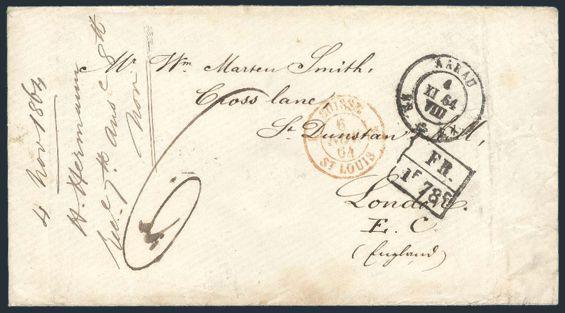 4 Nov 1864
H. Hermann
Rec. 7th ans. 8th
Nov
Mr. Wm. Marten Smith,
Cross lane
St. Dunstan
London.
E. C.
(England)
AARAU
4
XI 64
VIII
SUISSE
6
64
ST LOUIS
FR.
1F 78c
6